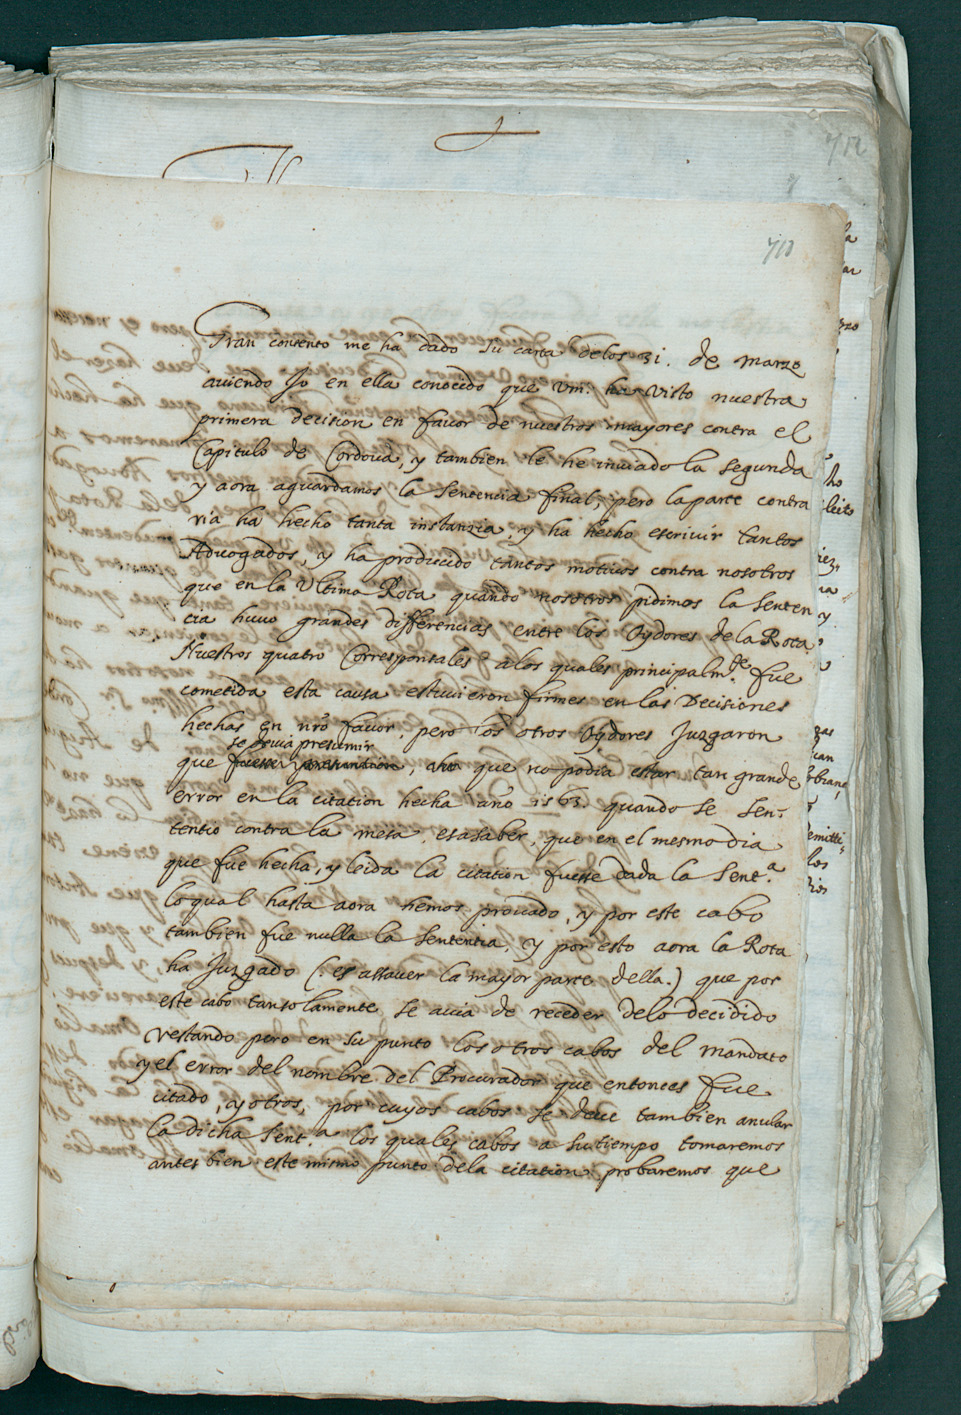 713
Gran contento me ha dado su carta delos 31. de Marzo
auiendo Jo en ella conocido que Vm. ha visto nuestra
primera decision en fauor de nuestros mayores contra el
Capitulo de Cordoua, y tambien le he inuiado la segunda
y aora aguardamos la sentencia final, pero la parte contra
ria ha hecho tanta instanzia, y ha hecho escriuir tantos
Aduogados, y ha producido tantos motiuos contra nosotros
que en la Vltima Rota quando nosotros pidimos la senten
cia huuo grandes differencias entre los Oydores de la Rota
Nuestros quatro Corresponsales a los quales principalm.te fue
cometida esta causa estuuieron firmes en las Decisiones
hechas en nro fauor, pero los otros Oydores Juzgaron
se deuia presumir
que, que no podia estar tan grande
error en la citation hecha año 1563. quando se sen-
tentio contra la meta, es asaber, que en el mesmo dia
que fue hecha, y leida la citation fuesse dada la sent.a
lo qual hasta aora hemos prouado, y por este cabo
tambien fue nulla la sententia, y por esto aora la Rota
ha Juzgado (: es assauer la mayor parte della.) que por
este cabo tansolamente se auia de receder delo decidido
restando pero en su punto los otros cabos del mandato
y el error del nombre del Procurador que entonces fue
citado, y otros, por cuyos cabos se deue tambien anular
la dicha sent.a los quales cabos a su tiempo tomaremos
antes bien este mismo punto dela citation probaremos que